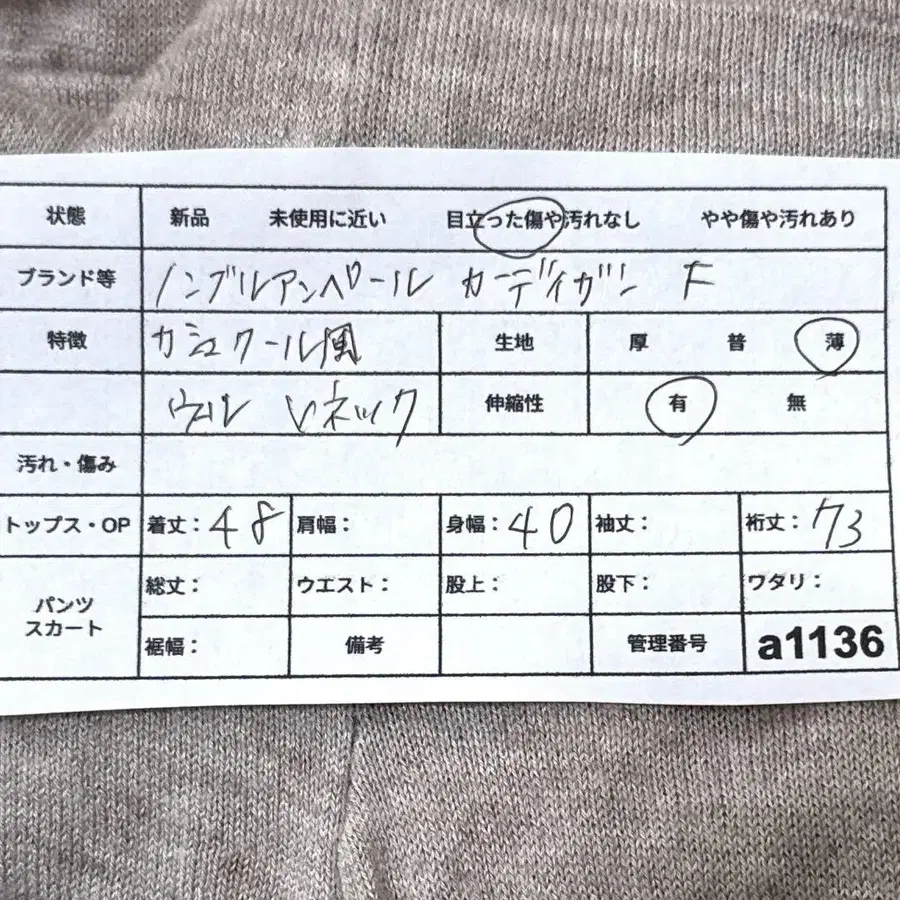 状態 新品 未使用に近い 目立った傷や汚れなし やや傷や汚れあり
ブランド等 ノンブルアンペール カーディガン F
特徴 カシュクール風 生地 厚 普 薄
ウール Vネック 伸縮性 有 無
汚れ・傷み
トップス・OP 着丈：48 肩幅： 身幅：40 袖丈： 裄丈：73
パンツ スカート 総丈： ウエスト： 股上： 股下： ワタリ：
裾幅： 備考 管理番号 a1136